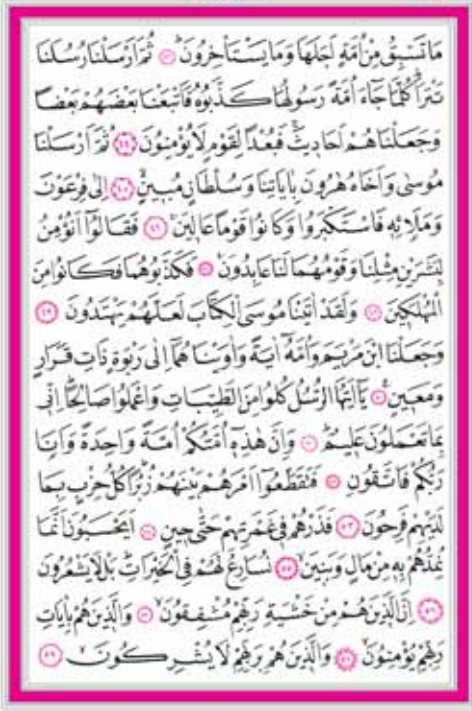 مَا تَسْبِقُ مِنْ اُمَّةٍ اَجَلَهَا وَمَا يَسْتَأْخِرُونَ ﴿٤٣﴾ ثُمَّ اَرْسَلْنَا رُسُلَنَا
تَتْرَا كُلَّمَا جَاءَ اُمَّةً رَسُولُهَا كَذَّبُوهُ فَاَتْبَعْنَا بَعْضَهُمْ بَعْضًا
وَجَعَلْنَاهُمْ اَحَادِيثَ فَبُعْدًا لِقَوْمٍ لَا يُؤْمِنُونَ ﴿٤٤﴾ ثُمَّ اَرْسَلْنَا
مُوسٰى وَاَخَاهُ هٰرُونَ بِاٰيَاتِنَا وَسُلْطَانٍ مُبِينٍ ﴿٤٥﴾ اِلٰى فِرْعَوْنَ
وَمَلَا۬ئِهِ فَاسْتَكْبَرُوا وَكَانُوا قَوْمًا عَالِينَ ﴿٤٦﴾ فَقَالُوا اَنُؤْمِنُ
لِبَشَرَيْنِ مِثْلِنَا وَقَوْمُهُمَا لَنَا عَابِدُونَ ﴿٤٧﴾ فَكَذَّبُوهُمَا فَكَانُوا مِنَ
الْمُهْلَكِينَ ﴿٤٨﴾ وَلَقَدْ اٰتَيْنَا مُوسَى الْكِتَابَ لَعَلَّهُمْ يَهْتَدُونَ ﴿٤٩﴾
وَجَعَلْنَا ابْنَ مَرْيَمَ وَاُمَّهُ اٰيَةً وَاٰوَيْنَاهُمَا اِلٰى رَبْوَةٍ ذَاتِ قَرَارٍ
وَمَعِينٍ ﴿٥٠﴾ يَا اَيُّهَا الرُّسُلُ كُلُوا مِنَ الطَّيِّبَاتِ وَاعْمَلُوا صَالِحًا اِنِّي
بِمَا تَعْمَلُونَ عَلِيمٌ ﴿٥١﴾ وَاِنَّ هٰذِهِ اُمَّتُكُمْ اُمَّةً وَاحِدَةً وَاَنَا
رَبُّكُمْ فَاتَّقُونِ ﴿٥٢﴾ فَتَقَطَّعُوا اَمْرَهُمْ بَيْنَهُمْ زُبُرًا كُلُّ حِزْبٍ بِمَا
لَدَيْهِمْ فَرِحُونَ ﴿٥٣﴾ فَذَرْهُمْ فِي غَمْرَتِهِمْ حَتّٰى حِينٍ ﴿٥٤﴾ اَيَحْسَبُونَ اَنَّمَا
نُمِدُّهُمْ بِهِ مِنْ مَالٍ وَبَنِينَ ﴿٥٥﴾ نُسَارِعُ لَهُمْ فِي الْخَيْرَاتِ بَلْ لَا يَشْعُرُونَ
﴿٥٦﴾ اِنَّ الَّذِينَ هُمْ مِنْ خَشْيَةِ رَبِّهِمْ مُشْفِقُونَ ﴿٥٧﴾ وَالَّذِينَ هُمْ بِاٰيَاتِ
رَبِّهِمْ يُؤْمِنُونَ ﴿٥٨﴾ وَالَّذِينَ هُمْ بِرَبِّهِمْ لَا يُشْرِكُونَ ﴿٥٩﴾